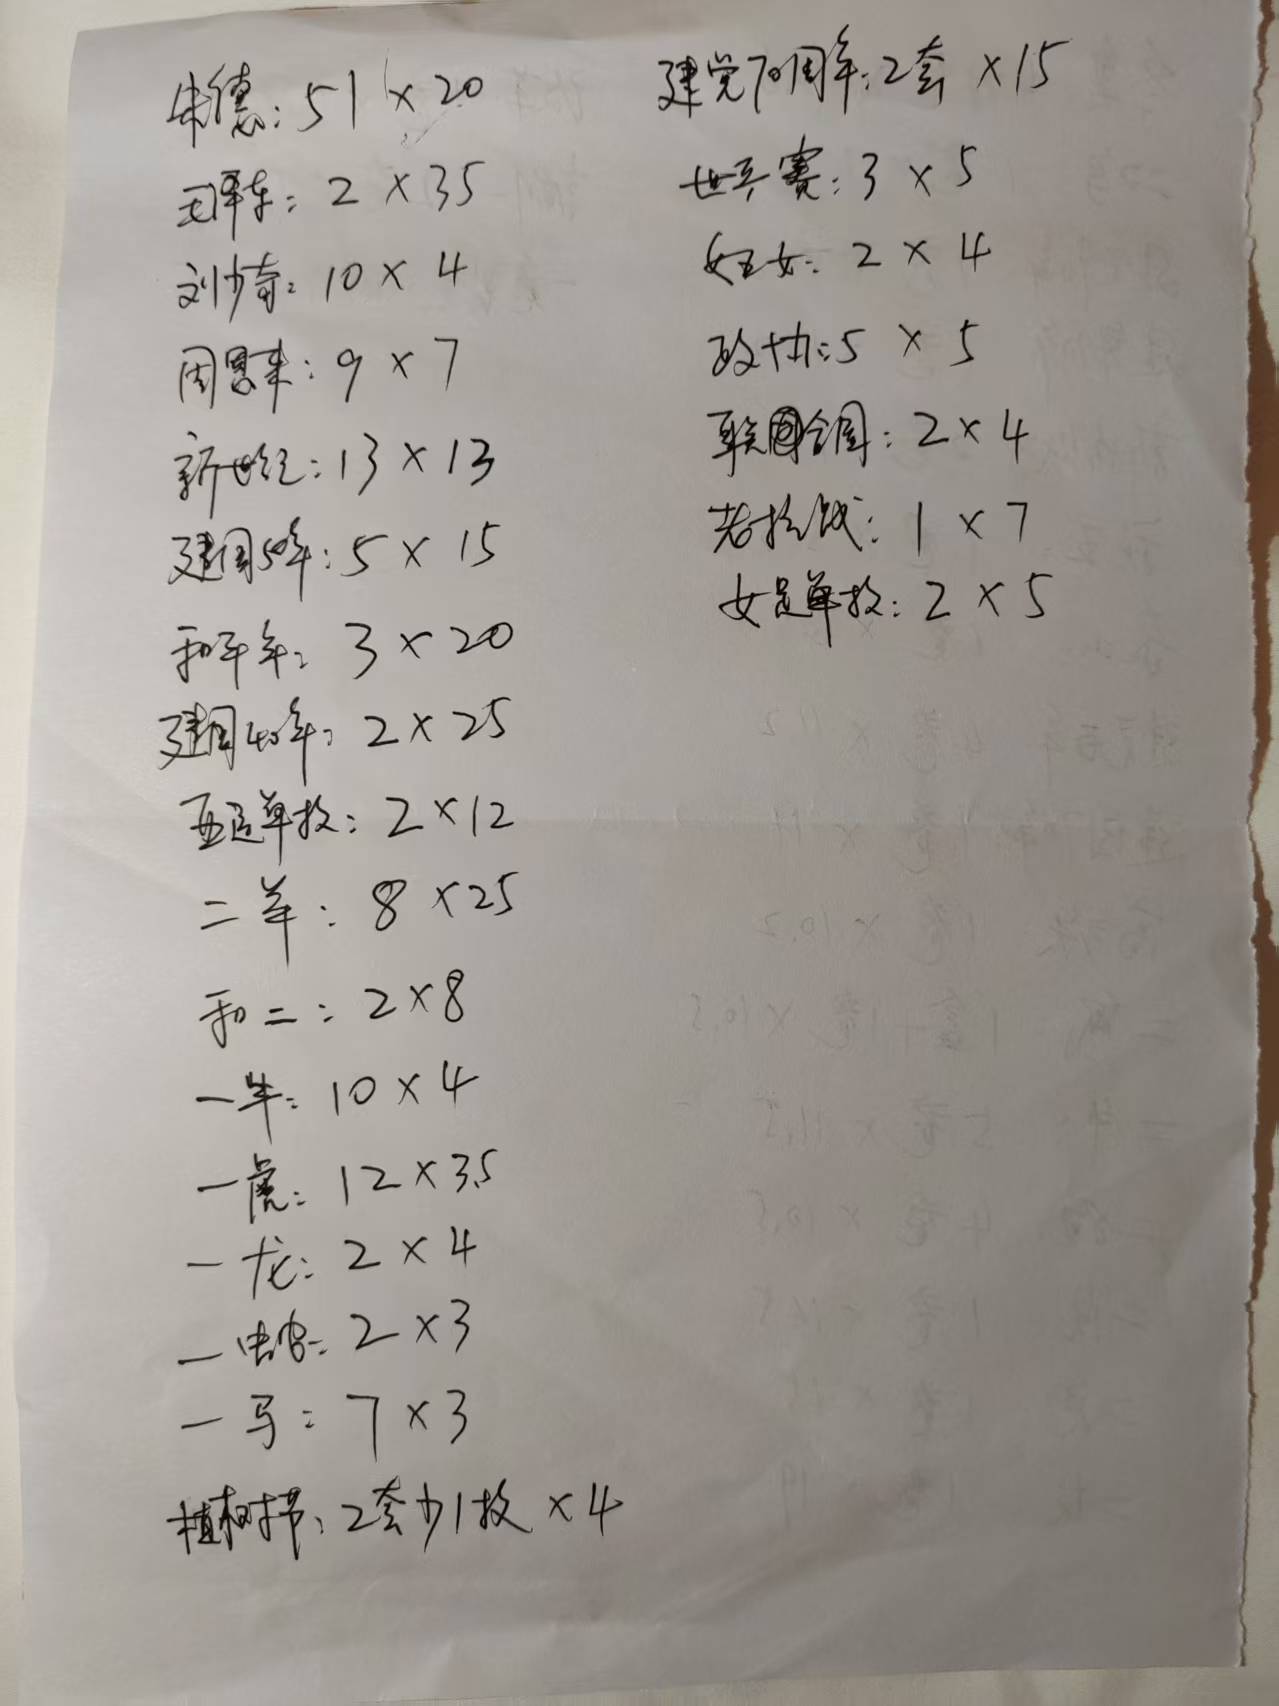 朱德：51×20
毛泽东：2×35
刘少奇：10×4
周恩来：9×7
新世纪：13×13
建国50年：5×15
和平年：3×20
建国40年：2×25
亚运单枚：2×12
二羊：8×25
和二：2×8
一牛：10×4
一虎：12×3.5
一龙：2×4
一蛇：2×3
一马：7×3
植树节：2套少1枚×4
建党70周年：2套×15
世乒赛：3×5
妇女：2×4
政协：5×5
联合国：2×4
老抗战：1×7
女足单枚：2×5